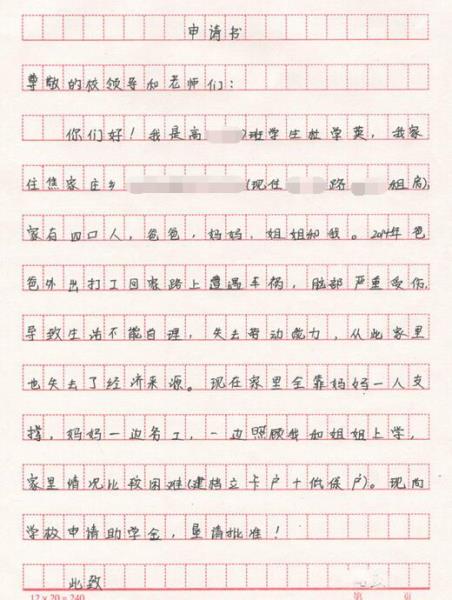 申请书
尊敬的校领导和老师们：
你们好！我是高 班学生杜学英，我家
住焦家庄乡 (现住 路 租房),
家有四口人，爸爸，妈妈，姐姐和我。2014年爸
爸外出打工回家路上遭遇车祸，脑部严重受伤，
导致生活不能自理，失去劳动能力，从此家里
也失去了经济来源。现在家里全靠妈妈一人支
撑，妈妈一边务工，一边照顾我和姐姐上学，
家里情况比较困难(建档立卡户+低保户)。现向
学校申请助学金，恳请批准！
此致
12×20=240 第 页